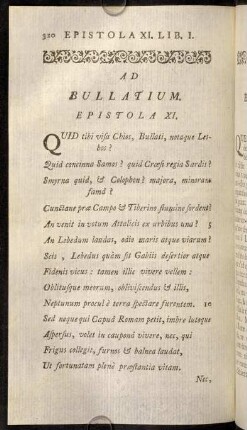 320 EPISTOLA XI. LIB. I.
AD
BULLATIUM.
EPISTOLA XI.
QUID tibi visa Chios, Bullati, notaque Les-
bos?
Quid concinna Samos? quid Crœsi regia Sardis?
Smyrna quid, & Colophon? majora, minorane
famâ?
Cunctane præ Campo & Tiberino flumine sordent?
An venit in votum Attalicis ex urbibus una? 5
An Lebedum laudas, odio maris atque viarum?
Scis, Lebedus quàm sit Gabiis desertior atque
Fidenis vicus: tamen illic vivere vellem:
Oblitusque meorum, obliviscendus & illis,
Neptunum procul è terra spectare furentem. 10
Sed neque qui Capuâ Romam petit, imbre lutoque
Aspersus, volet in cauponâ vivere, nec, qui
Frigus collegit, furnos & balnea laudat,
Ut fortunatam plenè præstantia vitam.
Nec,